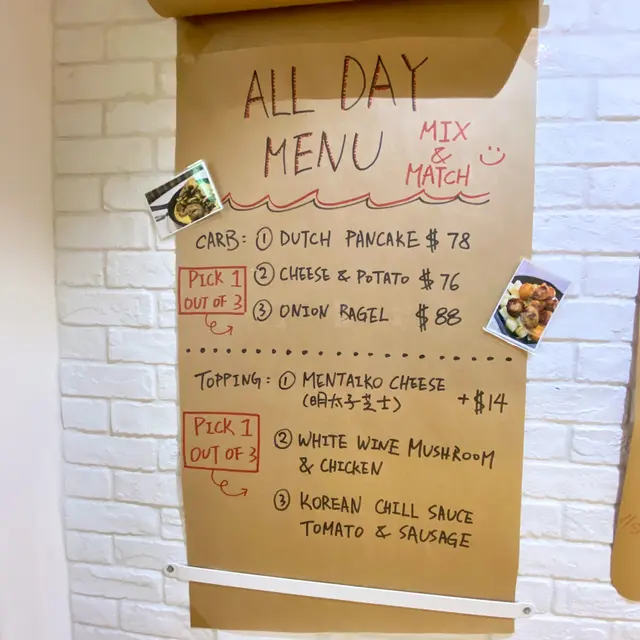 ALL DAY
MENU
MIX
&
MATCH
CARB: ① DUTCH PANCAKE $78
PICK 1
OUT OF 3
② CHEESE & POTATO $76
③ ONION BAGEL $88
TOPPING: ① MENTAIKO CHEESE
(明太子芝士) +$14
PICK 1
OUT OF 3
② WHITE WINE MUSHROOM
& CHICKEN
③ KOREAN CHILL SAUCE
TOMATO & SAUSAGE